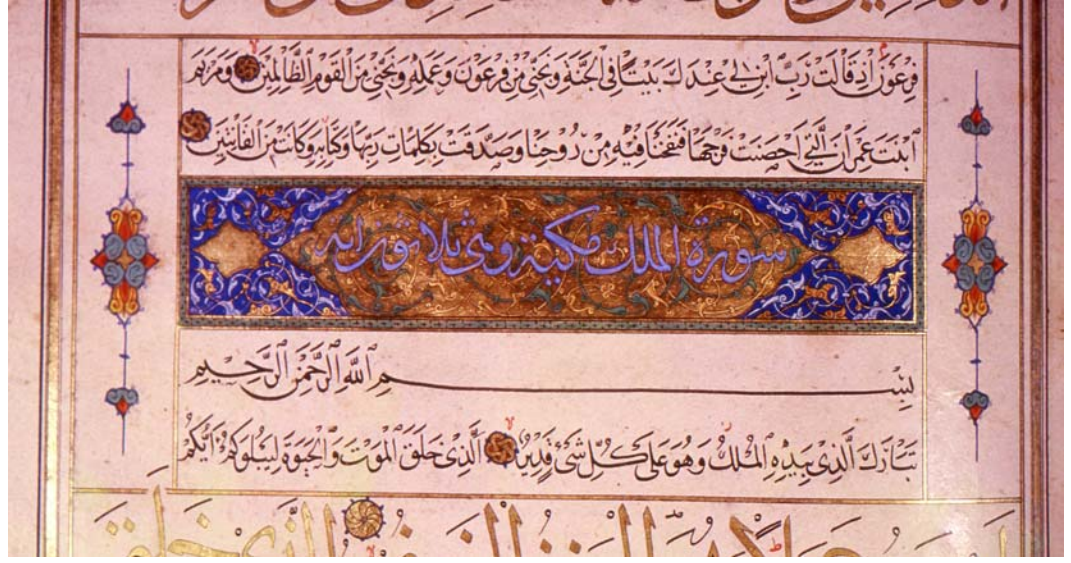 فِرْعَوْنَ اِذْ قَالَتْ رَبِّ ابْنِ لِي عِنْدَكَ بَيْتًا فِي الْجَنَّةِ وَنَجِّنِي مِنْ فِرْعَوْنَ وَعَمَلِهِ وَنَجِّنِي مِنَ الْقَوْمِ الظَّالِمِينَ وَمَرْيَمَ
ابْنَتَ عِمْرَانَ الَّتِي اَحْصَنَتْ فَرْجَهَا فَنَفَخْنَا فِيْهِ مِنْ رُوْحِنَا وَصَدَّقَتْ بِكَلِمَاتِ رَبِّهَا وَكِتَابِهِ وَكَانَتْ مِنَ الْقَانِتِيْنَ
سورة الملك مكية وهي ثلاثون اية
بِسْمِ اللّٰهِ الرَّحْمٰنِ الرَّحِيْمِ
تَبَارَكَ الَّذِيْ بِيَدِهِ الْمُلْكُ وَهُوَ عَلٰى كُلِّ شَيْءٍ قَدِيْرٌ الَّذِيْ خَلَقَ الْمَوْتَ وَالْحَيٰوةَ لِيَبْلُوَكُمْ اَيُّكُمْ